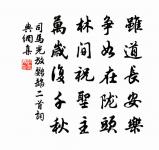 雖道長安樂
爭如在隴頭
林間祝聖主
萬歲復千秋
司馬光放鸚鵡二首詞
典網集